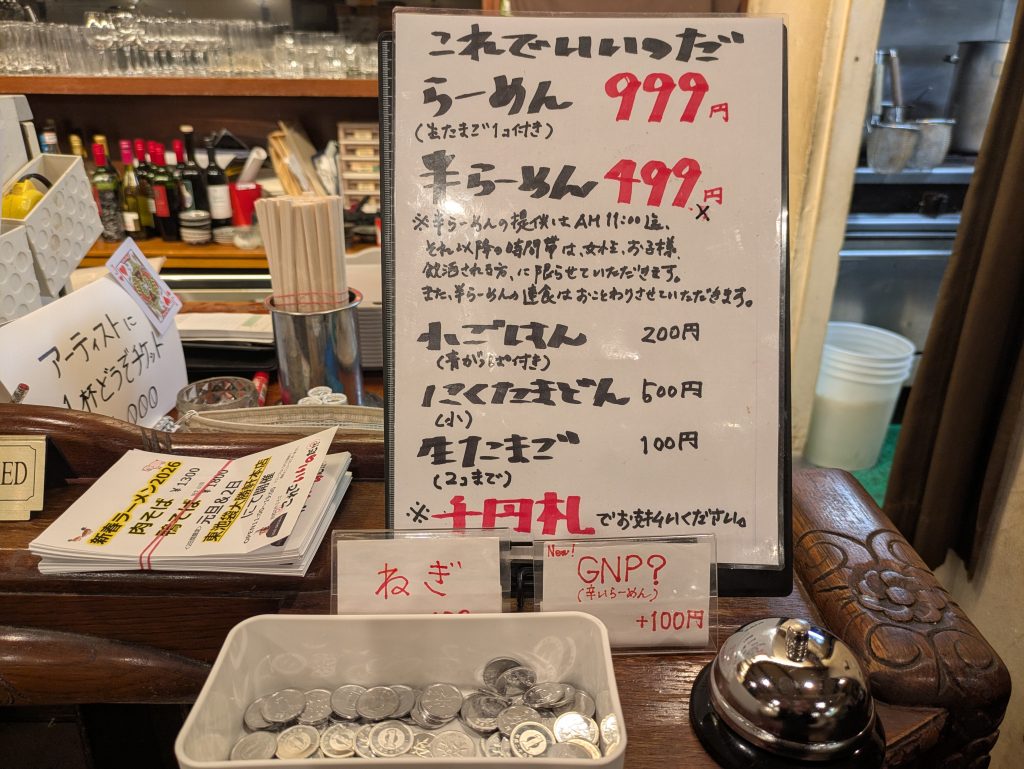 これでいいのだ
らーめん 999円
(生たまご1コ付き)
半らーめん 499円
※半らーめんの提供はAM11:00迄、
それ以降の時間帯は、女性、お子様、
飲酒される方、に限らせていただきます。
また、半らーめんの連食はおことわりさせていただきます。
小ごはん 200円
(青がらし付き)
にくたまどん 500円
(小)
生たまご 100円
(2コまで)
※千円札でお支払いください。
ねぎ
New!
GNP?
(辛いらーめん)
+100円
アーティストに
1杯どうぞチケット
000
ED
新春ラーメン2026
肉そば ¥1300
鴨そば ¥1800
元旦&2日
東池袋大勝軒本店
にて開催